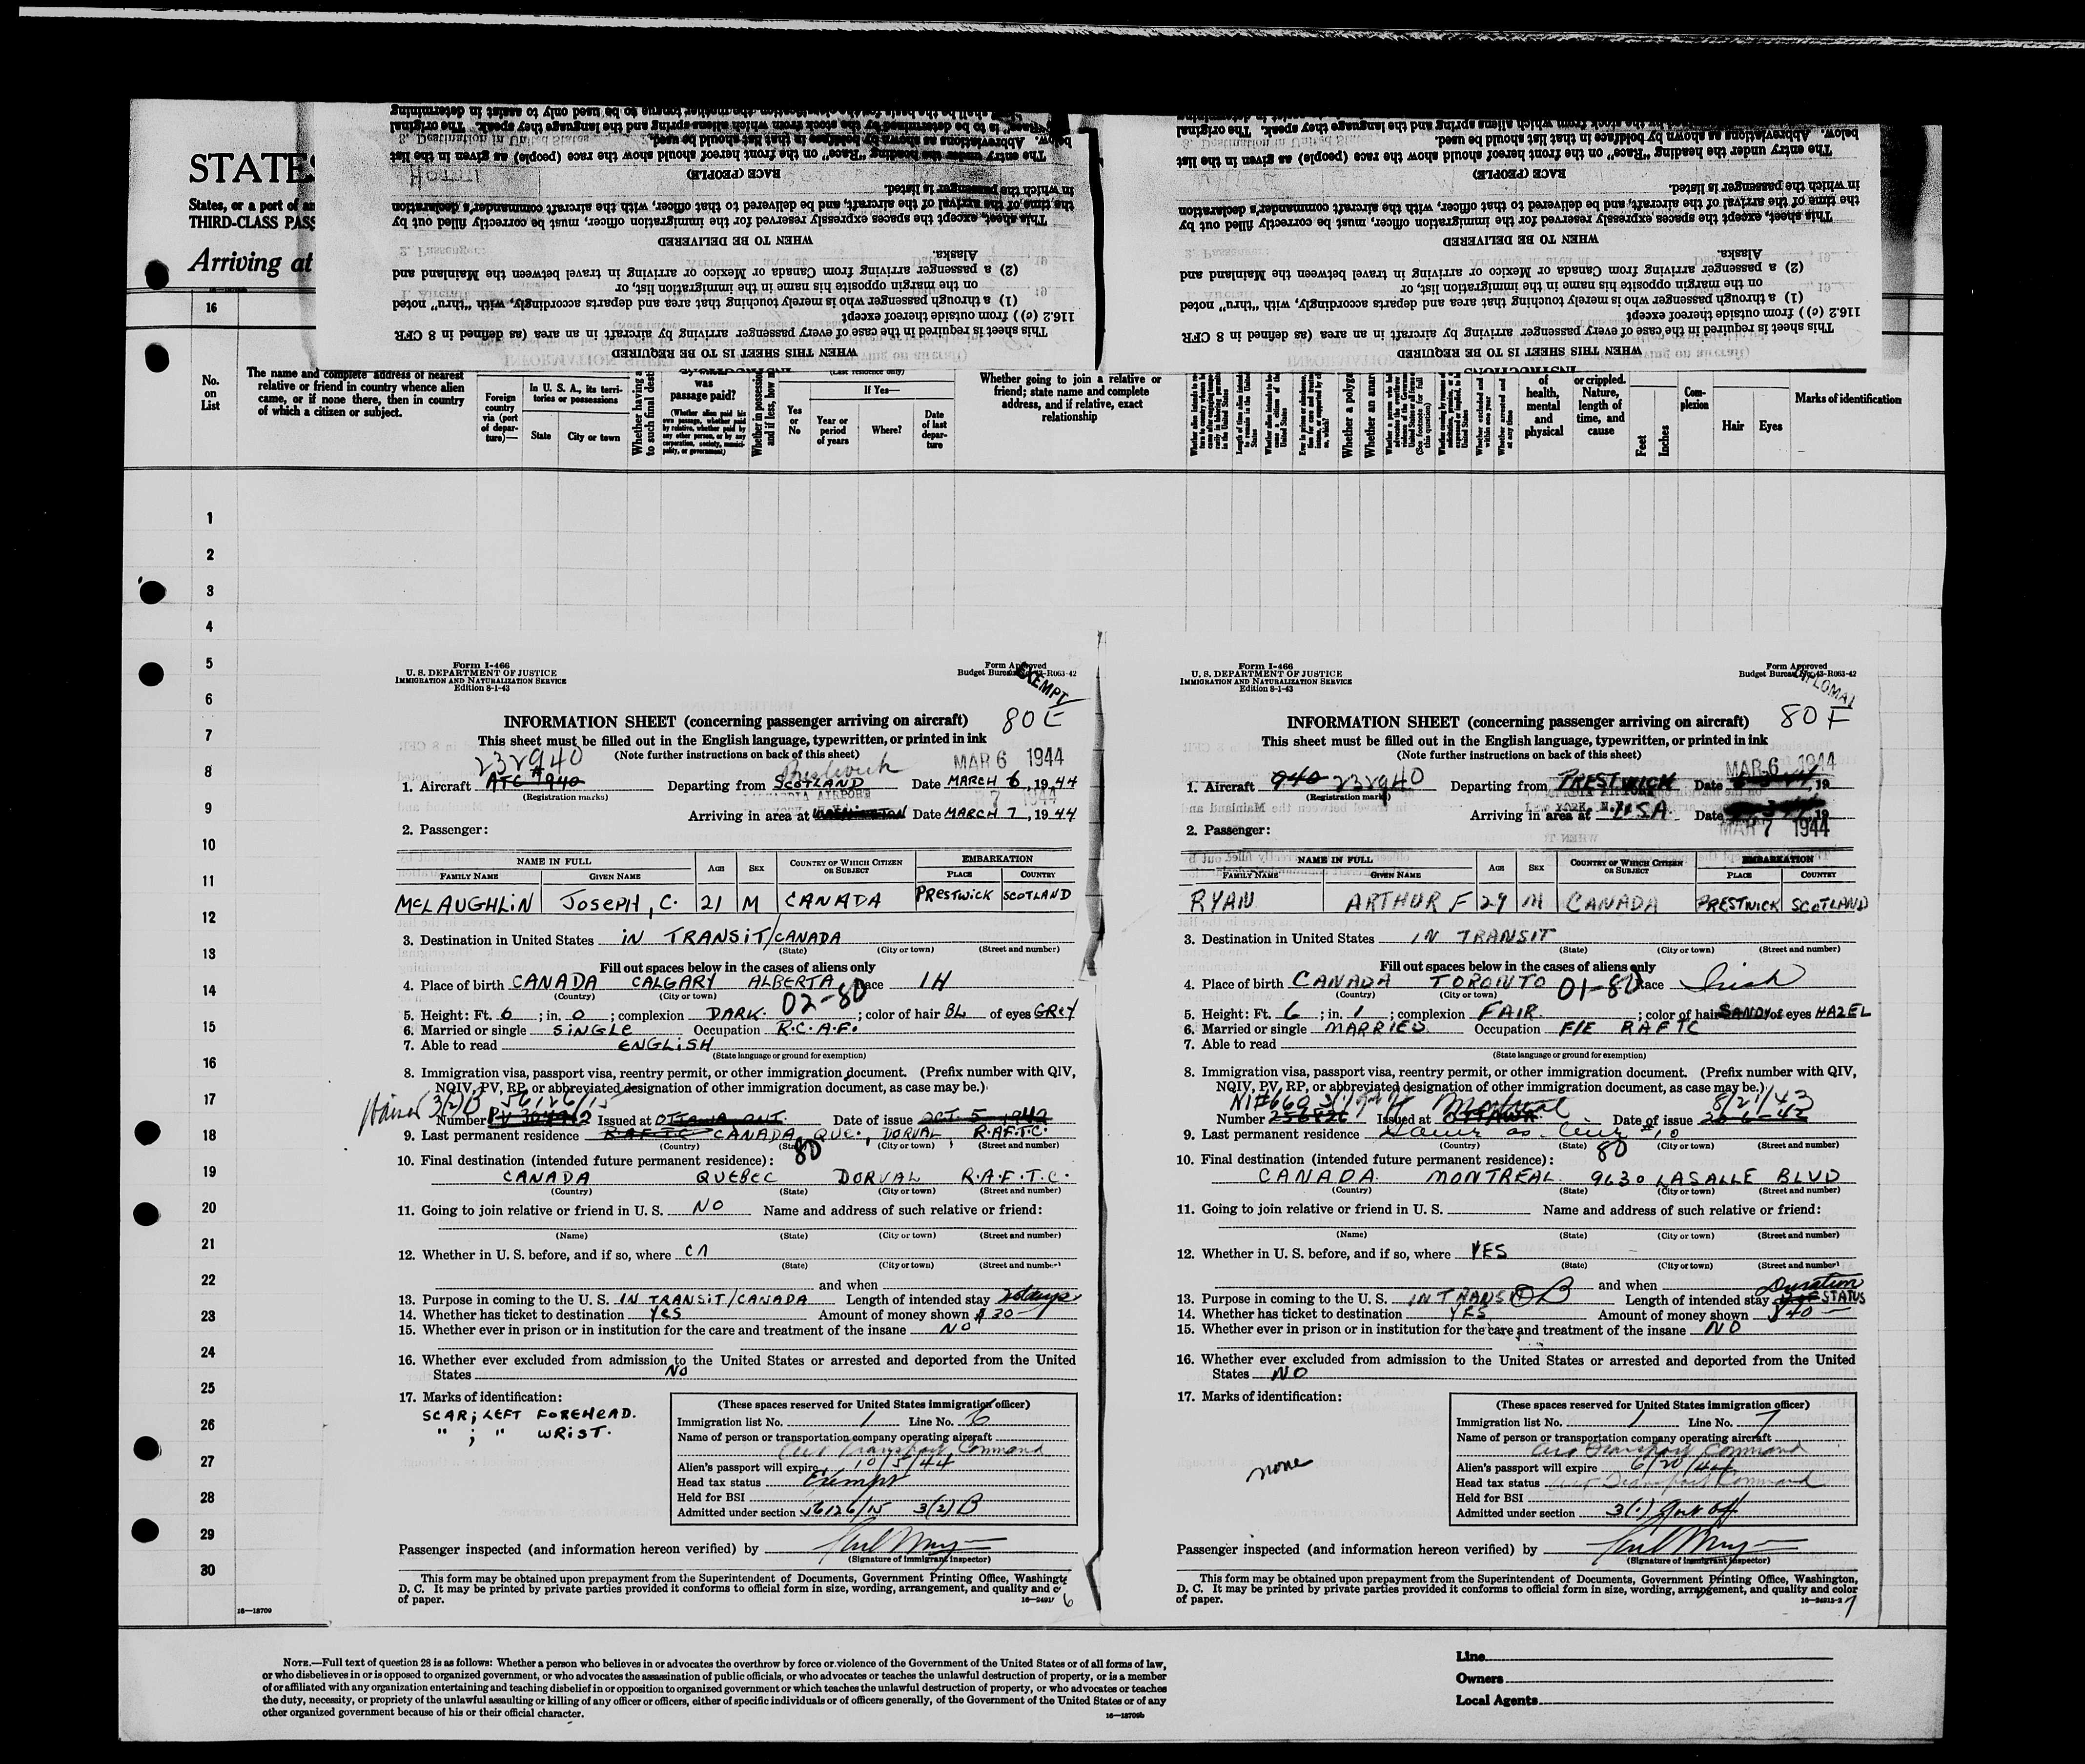 STATES
States, or a port of an
THIRD-CLASS PASS
Arriving at
16
WHEN THIS SHEET IS TO BE REQUIRED
This sheet is required in the case of every passenger arriving by aircraft in an area (as defined in 8 CFR
116.2 (c)) from outside thereof except
(1) a through passenger who is merely touching that area and departs accordingly, with "thru" noted
on the margin opposite his name in the immigration list, or
(2) a passenger arriving from Canada or Mexico or arriving in travel between the Mainland and
Alaska.
WHEN TO BE DELIVERED
This sheet, except the spaces expressly reserved for the immigration officer, must be correctly filled out by
the time of the arrival of the aircraft, and be delivered to that officer, with the aircraft commander's declaration
in which the passenger is listed.
RACE (PEOPLE)
The entry under the heading "Race" on the front hereof should show the race (people) as given in the list
below. Abbreviations as shown by boldface in that list should be used.
"Race" is to be determined by the stock from which aliens spring and the language they speak. The original
WHEN THIS SHEET IS TO BE REQUIRED
This sheet is required in the case of every passenger arriving by aircraft in an area (as defined in 8 CFR
116.2 (c)) from outside thereof except
(1) a through passenger who is merely touching that area and departs accordingly, with "thru" noted
on the margin opposite his name in the immigration list, or
(2) a passenger arriving from Canada or Mexico or arriving in travel between the Mainland and
Alaska.
WHEN TO BE DELIVERED
This sheet, except the spaces expressly reserved for the immigration officer, must be correctly filled out by
the time of the arrival of the aircraft, and be delivered to that officer, with the aircraft commander's declaration
in which the passenger is listed.
RACE (PEOPLE)
The entry under the heading "Race" on the front hereof should show the race (people) as given in the list
below. Abbreviations as shown by boldface in that list should be used.
No. on List
The name and complete address of nearest
relative or friend in country whence alien
came, or if none there, then in country
of which a citizen or subject.
Foreign country via (port of departure)—
In U. S. A., its territories or possessions
State
City or town
was passage paid?
Yes or No
If Yes—
Year or period of years
Where?
Date of last departure
Whether going to join a relative or
friend; state name and complete
address, and if relative, exact
relationship
of health, mental and physical
or crippled. Nature, length of time, and cause
Feet
Inches
Complexion
Hair
Eyes
Marks of identification
1
2
3
4
5
6
7
8
9
10
11
12
13
14
15
16
17
18
19
20
21
22
23
24
25
26
27
28
29
30
16—18709
Form I-466
U. S. DEPARTMENT OF JUSTICE
IMMIGRATION AND NATURALIZATION SERVICE
Edition 8-1-43
Form Approved
Budget Bureau No. 43-R063-42
EXEMPT
80 E
INFORMATION SHEET (concerning passenger arriving on aircraft)
This sheet must be filled out in the English language, typewritten, or printed in ink
(Note further instructions on back of this sheet)
232940 MAR 6 1944
1. Aircraft ATC #940 Departing from SCOTLAND Prestwick Date MARCH 6, 1944
(Registration marks)
Arriving in area at WASHINGTON Date MARCH 7, 1944
2. Passenger:
NAME IN FULL AGE SEX COUNTRY OF WHICH CITIZEN OR SUBJECT EMBARKATION
FAMILY NAME GIVEN NAME PLACE COUNTRY
McLAUGHLIN JOSEPH, C. 21 M CANADA PRESTWICK SCOTLAND
3. Destination in United States IN TRANSIT/CANADA
(State) (City or town) (Street and number)
Fill out spaces below in the cases of aliens only
4. Place of birth CANADA CALGARY ALBERTA Race IH
(Country) (City or town) 02-80
5. Height: Ft. 6 ; in. 0 ; complexion DARK. ; color of hair BL of eyes GREY
6. Married or single SINGLE Occupation R.C.A.F.
7. Able to read ENGLISH
(State language or ground for exemption)
8. Immigration visa, passport visa, reentry permit, or other immigration document. (Prefix number with QIV,
NQIV, PV, RP, or abbreviated designation of other immigration document, as case may be.)
3(2)B 56126/15
Number Issued at OTTAWA ONT. Date of issue OCT. 5 1942
9. Last permanent residence R.A.F.T.C. CANADA, QUE., DORVAL, R.A.F.T.C.
(Country) (State) (City or town) (Street and number)
80
10. Final destination (intended future permanent residence):
CANADA QUEBEC DORVAL R.A.F.T.C.
(Country) (State) (City or town) (Street and number)
11. Going to join relative or friend in U. S. NO Name and address of such relative or friend:
(Name) (State) (City or town) (Street and number)
12. Whether in U. S. before, and if so, where
(State) (City or town) (Street and number)
and when
13. Purpose in coming to the U. S. IN TRANSIT/CANADA Length of intended stay days
14. Whether has ticket to destination YES Amount of money shown $30
15. Whether ever in prison or in institution for the care and treatment of the insane NO
16. Whether ever excluded from admission to the United States or arrested and deported from the United
States NO
17. Marks of identification:
SCAR; LEFT FOREHEAD.
" ; " WRIST.
(These spaces reserved for United States immigration officer)
Immigration list No. 1 Line No. 6
Name of person or transportation company operating aircraft
Air Transport Command
Alien's passport will expire 10/5/44
Head tax status Exempt
Held for BSI
Admitted under section 56126/15 3(2)B
Passenger inspected (and information hereon verified) by
(Signature of immigrant inspector)
This form may be obtained upon prepayment from the Superintendent of Documents, Government Printing Office, Washingt
D. C. It may be printed by private parties provided it conforms to official form in size, wording, arrangement, and quality and c
of paper.
6
Form I-466
U. S. DEPARTMENT OF JUSTICE
IMMIGRATION AND NATURALIZATION SERVICE
Edition 8-1-43
Form Approved
Budget Bureau No. 43-R063-42
DIPLOMAT
80 F
INFORMATION SHEET (concerning passenger arriving on aircraft)
This sheet must be filled out in the English language, typewritten, or printed in ink
(Note further instructions on back of this sheet)
MAR 6 1944
1. Aircraft 940 232940 Departing from PRESTWICK Date 19
(Registration marks)
Arriving in area at USA Date 19
2. Passenger: MAR 7 1944
NAME IN FULL AGE SEX COUNTRY OF WHICH CITIZEN OR SUBJECT EMBARKATION
FAMILY NAME GIVEN NAME PLACE COUNTRY
RYAN ARTHUR F 29 M CANADA PRESTWICK SCOTLAND
3. Destination in United States IN TRANSIT
(State) (City or town) (Street and number)
Fill out spaces below in the cases of aliens only
4. Place of birth CANADA TORONTO 01-80 Race Irish
(Country) (City or town)
5. Height: Ft. 6 ; in. 1 ; complexion FAIR. ; color of hair SANDY of eyes HAZEL
6. Married or single MARRIED Occupation F/E RAFTC
7. Able to read
(State language or ground for exemption)
8. Immigration visa, passport visa, reentry permit, or other immigration document. (Prefix number with QIV,
NQIV, PV, RP, or abbreviated designation of other immigration document, as case may be.)
Montreal 8/21/43
Number Issued at OTTAWA Date of issue
9. Last permanent residence Same as #10
(Country) (State) (City or town) (Street and number)
80
10. Final destination (intended future permanent residence):
CANADA. MONTREAL. 9630 LASALLE BLVD
(Country) (State) (City or town) (Street and number)
11. Going to join relative or friend in U. S. Name and address of such relative or friend:
(Name) (State) (City or town) (Street and number)
12. Whether in U. S. before, and if so, where YES
(State) (City or town) (Street and number)
and when Duration
13. Purpose in coming to the U. S. IN TRANSIT B Length of intended stay OF STATUS
14. Whether has ticket to destination YES Amount of money shown $40—
15. Whether ever in prison or in institution for the care and treatment of the insane NO
16. Whether ever excluded from admission to the United States or arrested and deported from the United
States NO
17. Marks of identification:
none
(These spaces reserved for United States immigration officer)
Immigration list No. 1 Line No. 7
Name of person or transportation company operating aircraft
Air Transport Command
Alien's passport will expire 6/20/44
Head tax status Air Transport Command
Held for BSI
Admitted under section 3(1)
Passenger inspected (and information hereon verified) by
(Signature of immigrant inspector)
This form may be obtained upon prepayment from the Superintendent of Documents, Government Printing Office, Washington,
D. C. It may be printed by private parties provided it conforms to official form in size, wording, arrangement, and quality and color
of paper.
16—24915-2 7
NOTE.—Full text of question 28 is as follows: Whether a person who believes in or advocates the overthrow by force or violence of the Government of the United States or of all forms of law,
or who disbelieves in or is opposed to organized government, or who advocates the assassination of public officials, or who advocates or teaches the unlawful destruction of property, or is a member
of or affiliated with any organization entertaining and teaching disbelief in or opposition to organized government or which teaches the unlawful destruction of property, or who advocates or teaches
the duty, necessity, or propriety of the unlawful assaulting or killing of any officer or officers, either of specific individuals or of officers generally, of the Government of the United States or of any
other organized government because of his or their official character.
16—18709b
Line
Owners
Local Agents